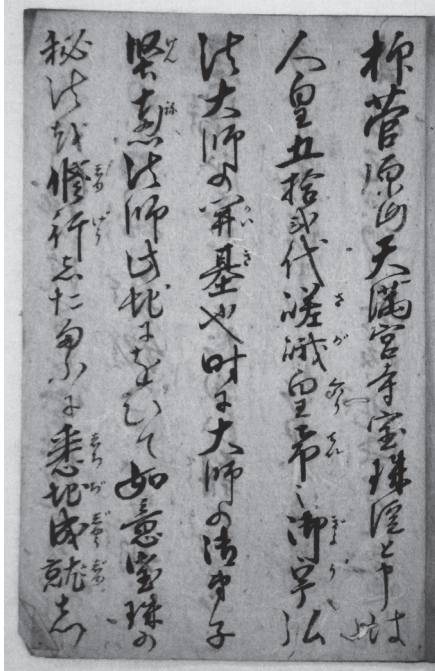 抑菅原山天満宮寺宝珠院と申は
人皇五拾弐代嵯峨皇帝之御宇弘
法大師の開基也時に大師の御弟子
堅恵法師此地において如意宝珠の
秘法を修行したまふに悉地成就し